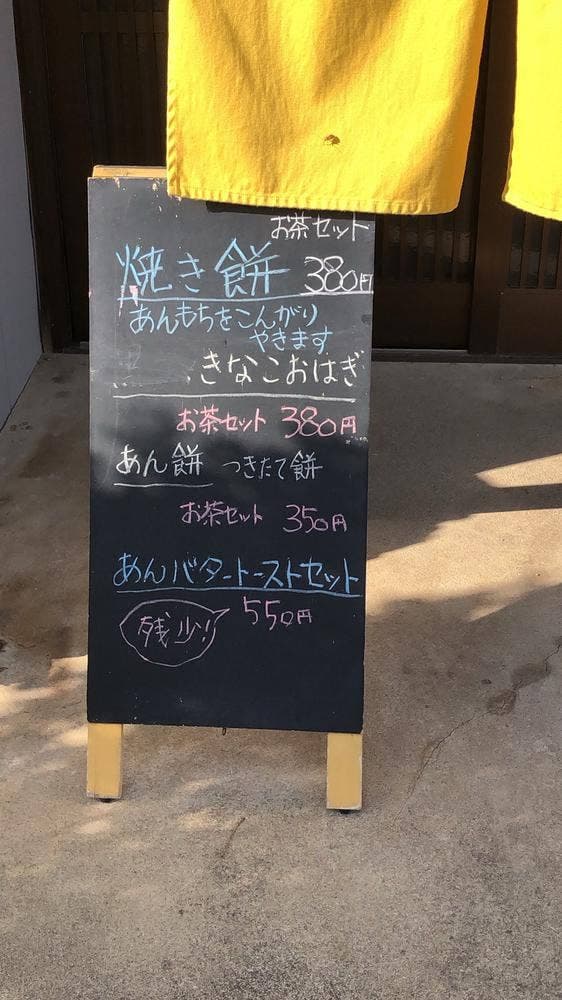 お茶セット
焼き餅 380円
あんもちをこんがり
やきます
きなこおはぎ
お茶セット 380円
あん餅 つきたて餅
お茶セット 350円
あんバタートーストセット
残少!! 550円